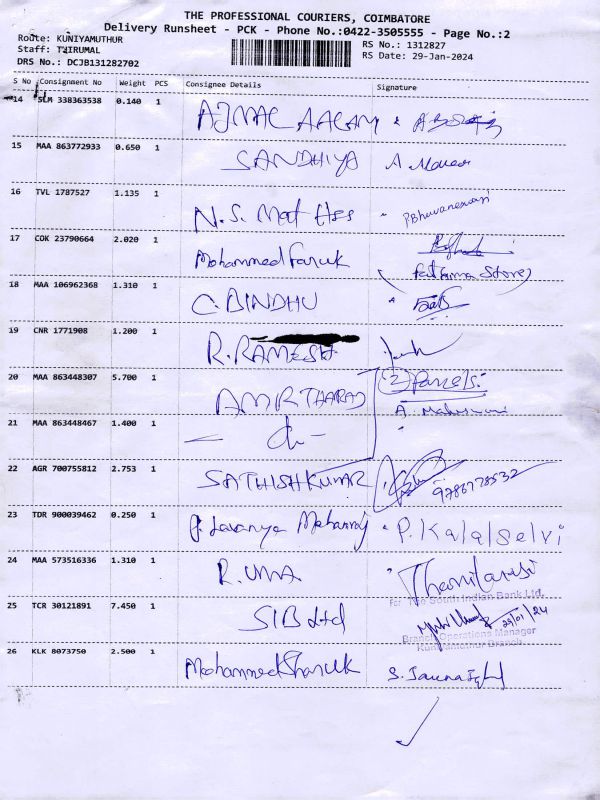 THE PROFESSIONAL COURIERS, COIMBATORE
Delivery Runsheet - PCK - Phone No.:0422-3505555 - Page No.:2
Route: KUNIYAMUTHUR RS No.: 1312827
Staff: THIRUMAL RS Date: 29-Jan-2024
DRS No.: DCJB131282702
S No Consignment No Weight PCS Consignee Details Signature
14 SLM 338363538 0.140 1 AJMAL AALAM
15 MAA 863772933 0.650 1 SANDHIYA A.
16 TVL 1787527 1.135 1 N.S. Mat Hss P.Bhuvaneswari
17 COK 23790664 2.020 1 Mohammed Faruk
Fathima Store
18 MAA 106962368 1.310 1 C. BINDHU
19 CNR 1771908 1.200 1 R. RAMESH
20 MAA 863448307 5.700 1 AMRTHARAJ (2) Parcels:
A. Maheswari
21 MAA 863448467 1.400 1 - do -
22 AGR 700755812 2.753 1 SATHISH KUMAR 9786778532
23 TDR 900039462 0.250 1 P. Lavanya Mohanraj P. Kalaiselvi
24 MAA 573516336 1.310 1 R. UMA Thamilarasi
For The South Indian Bank Ltd.
25 TCR 30121891 7.450 1 SIB Ltd 29/01/24
Branch Operations Manager
Kuniamuthur Branch
26 KLK 8073750 2.500 1 Mohammed Sharuk S.